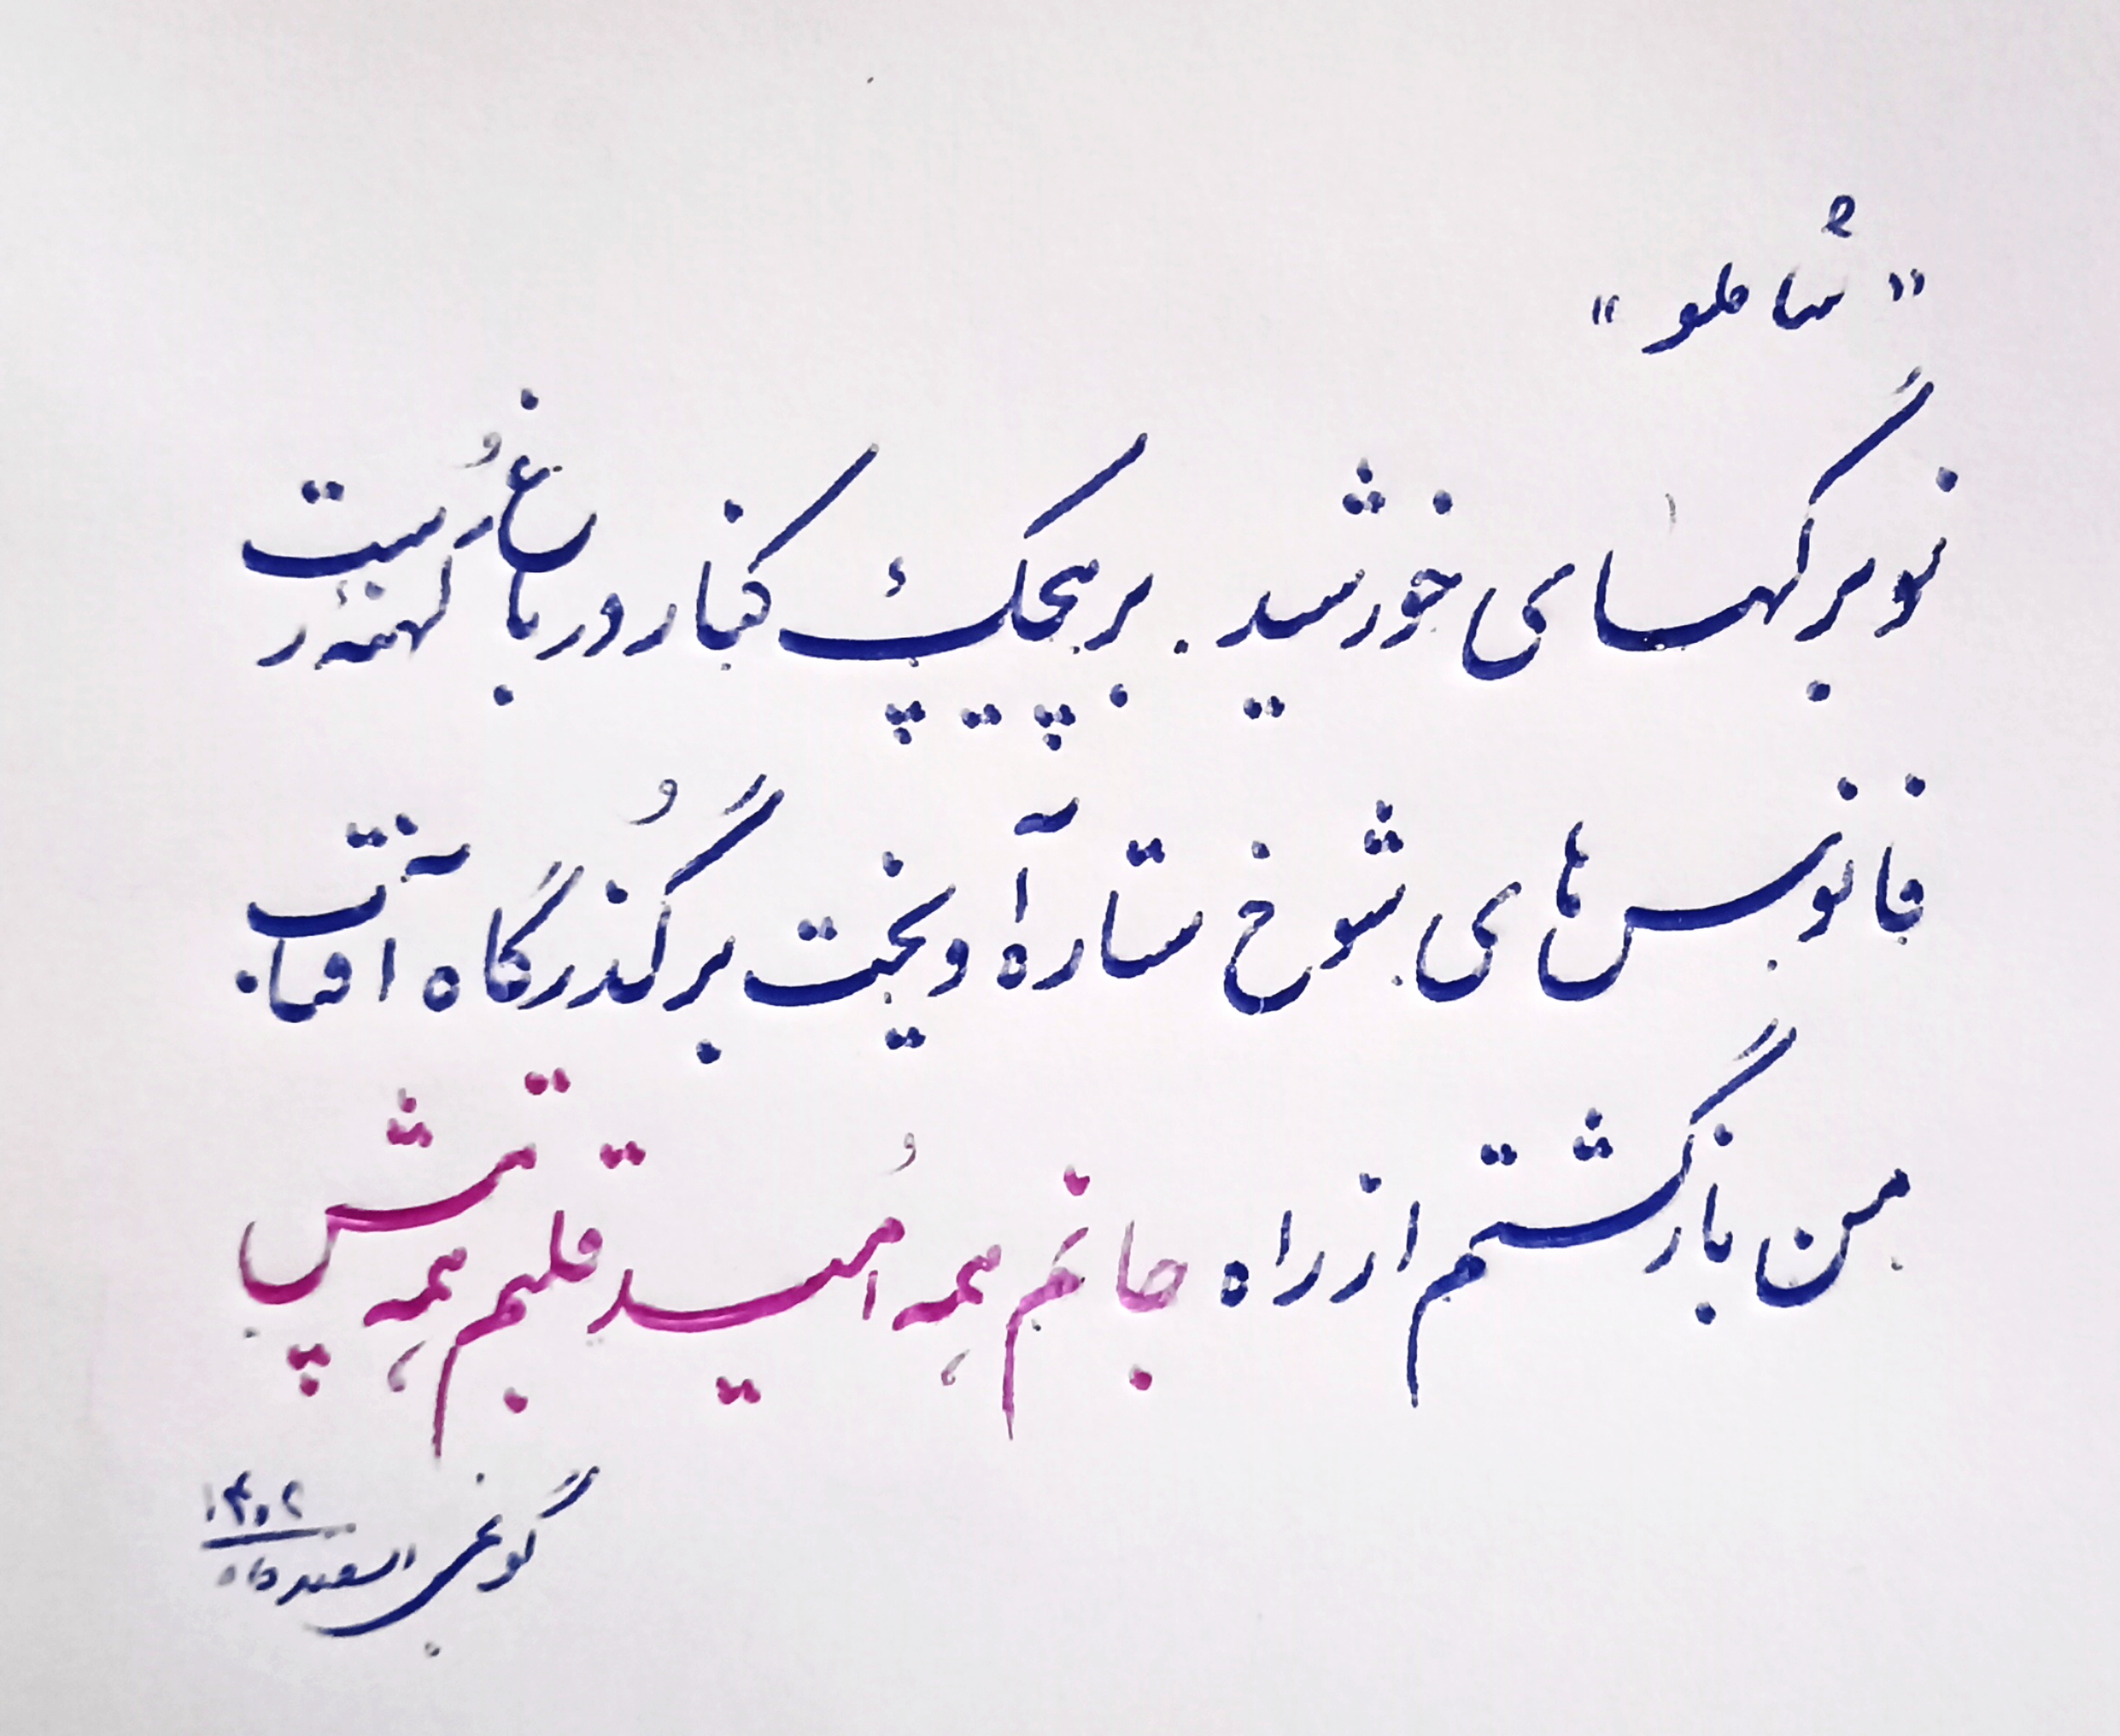 "شاملو"
نوبرگهای خورشید. بر پیچکِ کنار درِ باغِ کهنه رُست
فانوس‌های شوخ ستاره آویخت بر گُذرگاه آفتاب
من بازگشتم از راه جانم همه اُمید قلبم همه تپش
اسفندماه ۱۴۰۲